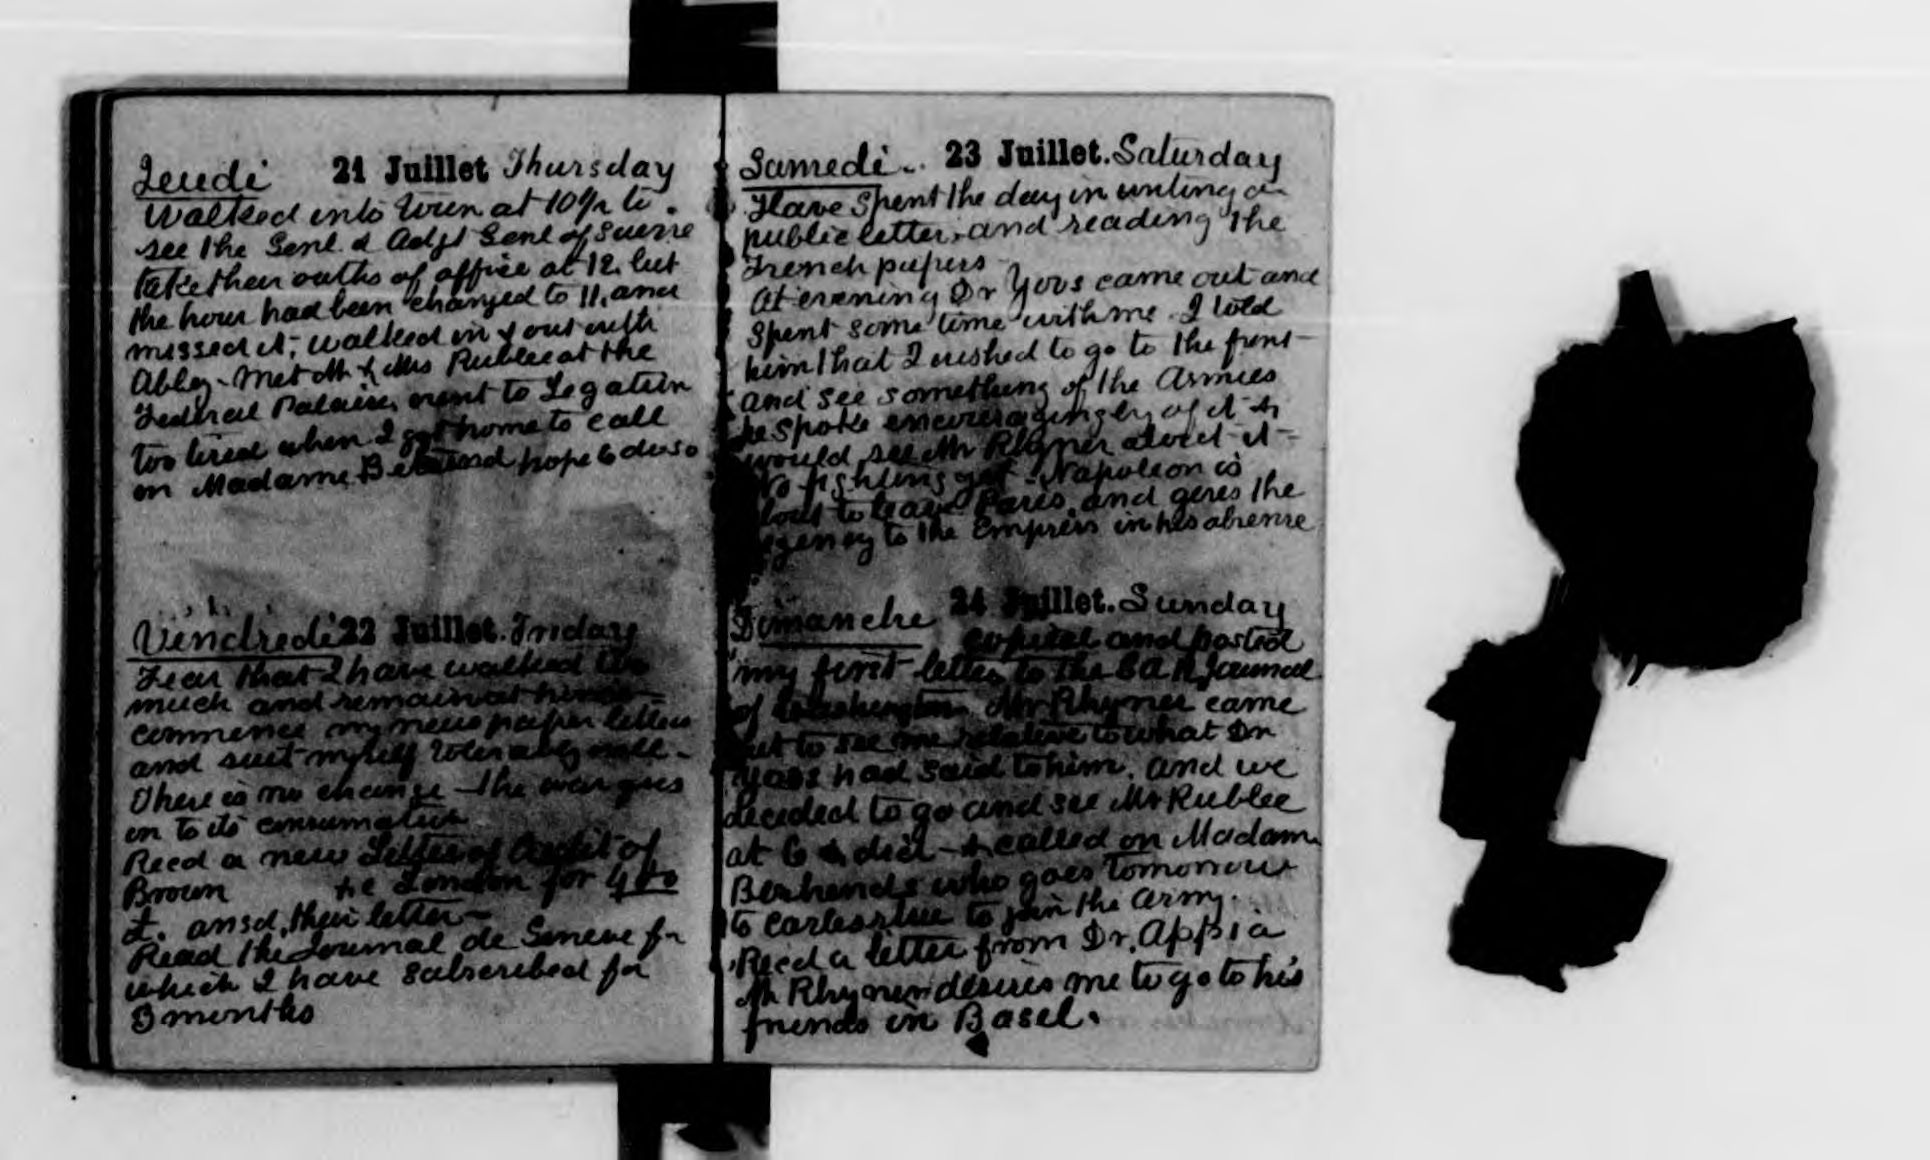 Jeudi 21 Juillet Thursday
Walked into town at 10½ to
see the Genl & Adgt Genl of Guerre
take their oaths of office at 12. but
the hour had been changed to 11. and
missed it; walked in & out with
Abley - Met M & Mrs Rublee at the
Federal Palaise, went to Legation
too tired when I got home to call
on Madame hope to do so
Vendredi 22 Juillet. Friday
Fear that I have walked too
much and remain at home -
commence my news paper letters
and suit myself tolerably well -
There is no change - the war goes
on to its consumation
Recd a new Letter of Credit of
Brown London for 400
£. ansd, their letter -
Read the Journal de Geneve for
which I have subscribed for
3 months
Samedi.. 23 Juillet. Saturday
Have spent the day in writing a
public letter, and reading the
French papers -
At evening Dr Yoos came out and
spent some time with me. I told
him that I wished to go to the front -
and see something of the Armies
he spoke encouragingly of it &
would see Mr Rhyner about it -
No fighting yet - Napoleon is
about to leave Paris, and gives the
regency to the Empress in his absence
Dimanche 24 Juillet. Sunday
copied and posted
my first letter to the G A R Journal
of Washington Mr Rhyner came
out to see me relative to what Dr
Yoos had said to him. and we
decided to go and see Mr Rublee
at 6 & did - & called on Madam
Berhends who goes tomorrow
to Carlesrhue to join the Army.
Recd a letter from Dr. Appia
Mr Rhyner desires me to go to his
friends in Basel.